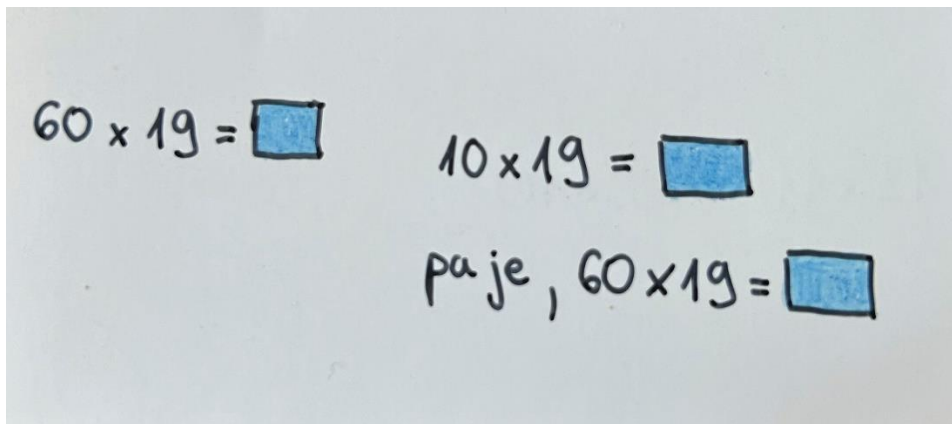 60 × 19 =
10 × 19 =
pa je, 60 × 19 =